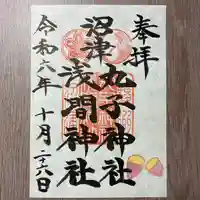 奉拝
沼津
丸子神社
浅間神社
令和六年 十月二十六日